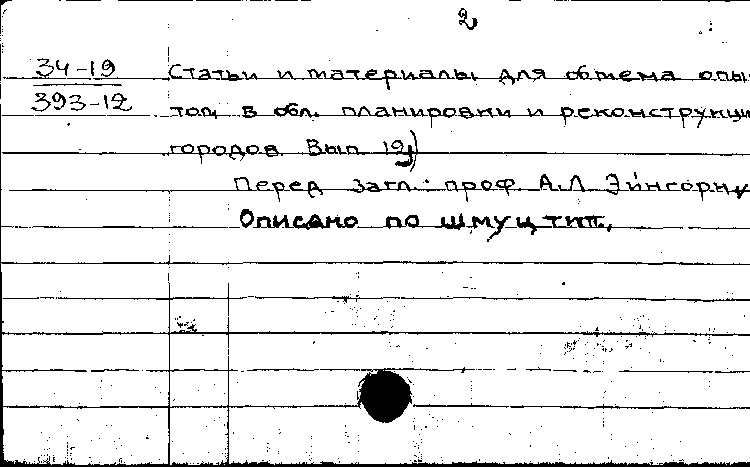 2
34-19 Статьи и материалы для обмена опы-
393-12 том в обл. планировки и реконструкци
городов. Вып. 19)
Перед загл.: проф. А.Л. Эйнгорн
Описано по шмуцтит.